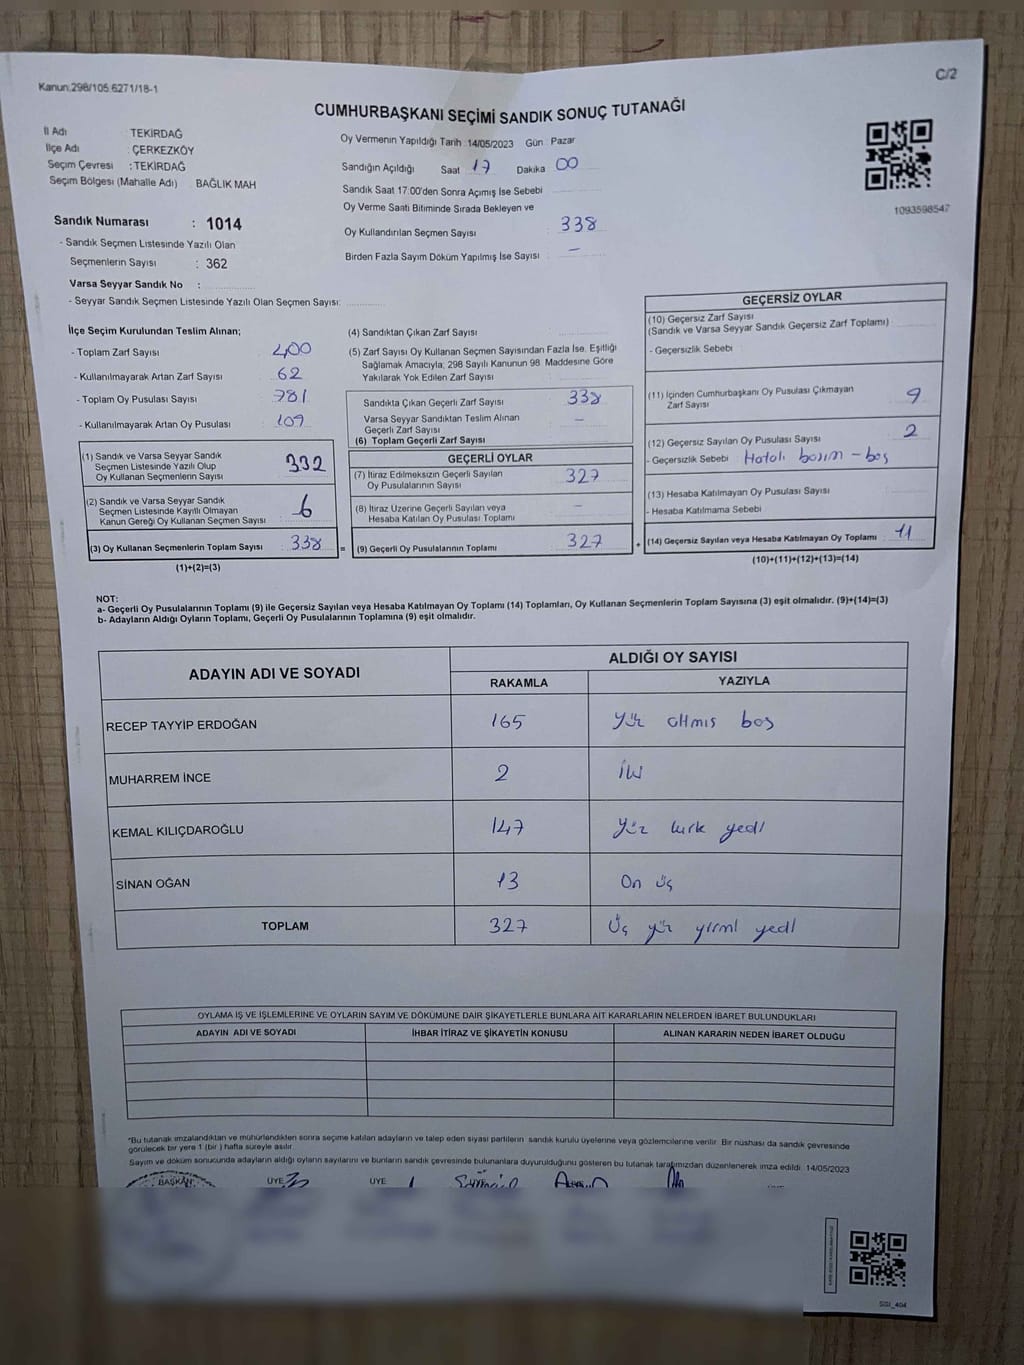 Kanun:298/105.6271/18-1
C/2
CUMHURBAŞKANI SEÇİMİ SANDIK SONUÇ TUTANAĞI
İl Adı : TEKİRDAĞ
İlçe Adı : ÇERKEZKÖY
Seçim Çevresi : TEKİRDAĞ
Seçim Bölgesi (Mahalle Adı) BAĞLIK MAH
Oy Vermenin Yapıldığı Tarih :14/05/2023 Gün : Pazar
Sandığın Açıldığı Saat 17 Dakika 00
Sandık Saat 17:00'den Sonra Açımış İse Sebebi
Oy Verme Saati Bitiminde Sırada Bekleyen ve
Oy Kullandırılan Seçmen Sayısı : 338
Birden Fazla Sayım Döküm Yapılmış İse Sayısı : –
1093598547
Sandık Numarası : 1014
- Sandık Seçmen Listesinde Yazılı Olan
Seçmenlerin Sayısı : 362
Varsa Seyyar Sandık No :
- Seyyar Sandık Seçmen Listesinde Yazılı Olan Seçmen Sayısı:
İlçe Seçim Kurulundan Teslim Alınan;
- Toplam Zarf Sayısı : 400
- Kullanılmayarak Artan Zarf Sayısı : 62
- Toplam Oy Pusulası Sayısı : 781
- Kullanılmayarak Artan Oy Pusulası : 109
(1) Sandık ve Varsa Seyyar Sandık
Seçmen Listesinde Yazılı Olup
Oy Kullanan Seçmenlerin Sayısı : 332
(2) Sandık ve Varsa Seyyar Sandık
Seçmen Listesinde Kayıtlı Olmayan
Kanun Gereği Oy Kullanan Seçmen Sayısı : 6
(3) Oy Kullanan Seçmenlerin Toplam Sayısı : 338
(1)+(2)=(3)
(4) Sandıktan Çıkan Zarf Sayısı
(5) Zarf Sayısı Oy Kullanan Seçmen Sayısından Fazla İse, Eşitliği
Sağlamak Amacıyla; 298 Sayılı Kanunun 98. Maddesine Göre
Yakılarak Yok Edilen Zarf Sayısı
Sandıkta Çıkan Geçerli Zarf Sayısı : 338
Varsa Seyyar Sandıktan Teslim Alınan
Geçerli Zarf Sayısı : –
(6) Toplam Geçerli Zarf Sayısı
GEÇERLİ OYLAR
(7) İtiraz Edilmeksizin Geçerli Sayılan
Oy Pusulalarının Sayısı : 327
(8) İtiraz Üzerine Geçerli Sayılan veya
Hesaba Katılan Oy Pusulası Toplamı : –
= (9) Geçerli Oy Pusulalarının Toplamı : 327 +
GEÇERSİZ OYLAR
(10) Geçersiz Zarf Sayısı
(Sandık ve Varsa Seyyar Sandık Geçersiz Zarf Toplamı)
- Geçersizlik Sebebi :
(11) İçinden Cumhurbaşkanı Oy Pusulası Çıkmayan
Zarf Sayısı : 9
(12) Geçersiz Sayılan Oy Pusulası Sayısı : 2
- Geçersizlik Sebebi : Hatalı basım – boş
(13) Hesaba Katılmayan Oy Pusulası Sayısı
- Hesaba Katılmama Sebebi
(14) Geçersiz Sayılan veya Hesaba Katılmayan Oy Toplamı : 11
(10)+(11)+(12)+(13)=(14)
NOT:
a- Geçerli Oy Pusulalarının Toplamı (9) ile Geçersiz Sayılan veya Hesaba Katılmayan Oy Toplamı (14) Toplamları, Oy Kullanan Seçmenlerin Toplam Sayısına (3) eşit olmalıdır. (9)+(14)=(3)
b- Adayların Aldığı Oyların Toplamı, Geçerli Oy Pusulalarının Toplamına (9) eşit olmalıdır.
ADAYIN ADI VE SOYADI ALDIĞI OY SAYISI
RAKAMLA YAZIYLA
RECEP TAYYİP ERDOĞAN 165 Yüz altmış beş
MUHARREM İNCE 2 İki
KEMAL KILIÇDAROĞLU 147 Yüz kırk yedi
SİNAN OĞAN 13 On üç
TOPLAM 327 Üç yüz yirmi yedi
OYLAMA İŞ VE İŞLEMLERİNE VE OYLARIN SAYIM VE DÖKÜMÜNE DAİR ŞİKAYETLERLE BUNLARA AİT KARARLARIN NELERDEN İBARET BULUNDUKLARI
ADAYIN ADI VE SOYADI İHBAR İTİRAZ VE ŞİKAYETİN KONUSU ALINAN KARARIN NEDEN İBARET OLDUĞU
*Bu tutanak imzalandıktan ve mühürlendikten sonra seçime katılan adayların ve talep eden siyasi partilerin sandık kurulu üyelerine veya gözlemcilerine verilir. Bir nüshası da sandık çevresinde
görülecek bir yere 1 (bir ) hafta süreyle asılır.
Sayım ve döküm sonucunda adayların aldığı oyların sayılarını ve bunların sandık çevresinde bulunanlara duyurulduğunu gösteren bu tutanak tarafımızdan düzenlenerek imza edildi. 14/05/2023
BAŞKAN ÜYE ÜYE